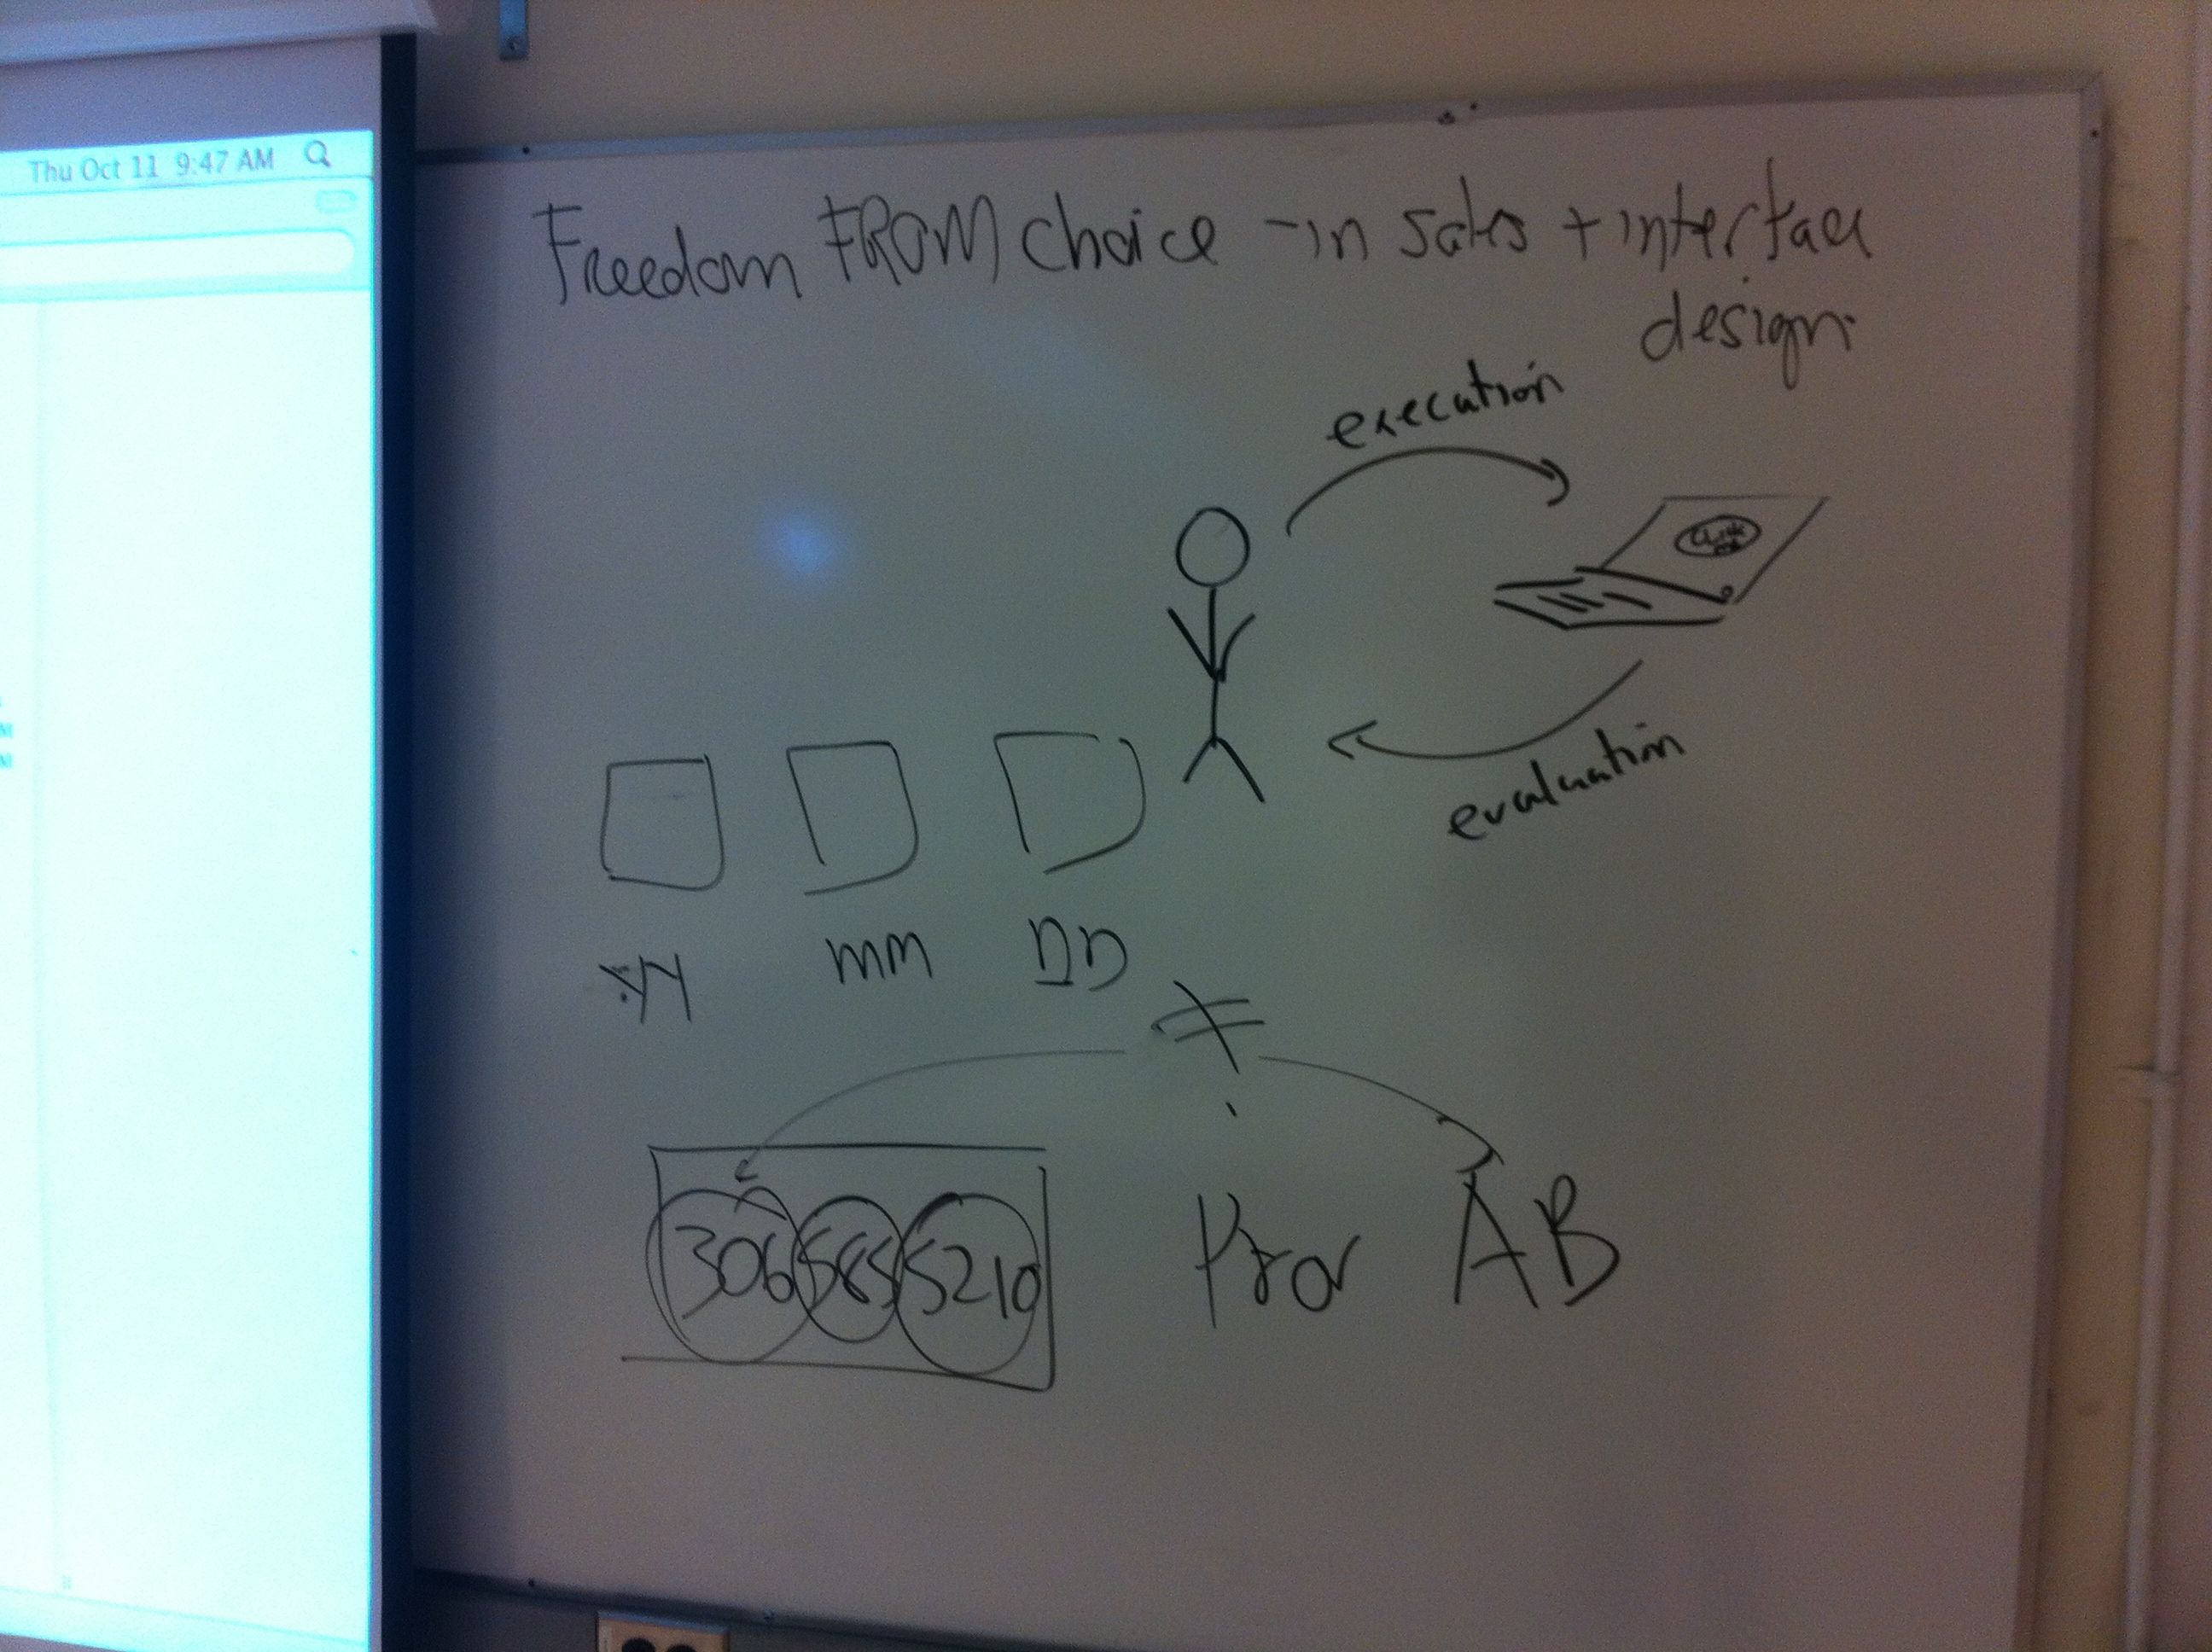 Thu Oct 11 9:47 AM
Freedom FROM choice - in sales + interface
design.
execution
Click
evaluation
YY MM DD
≠
306 585 5210
AB